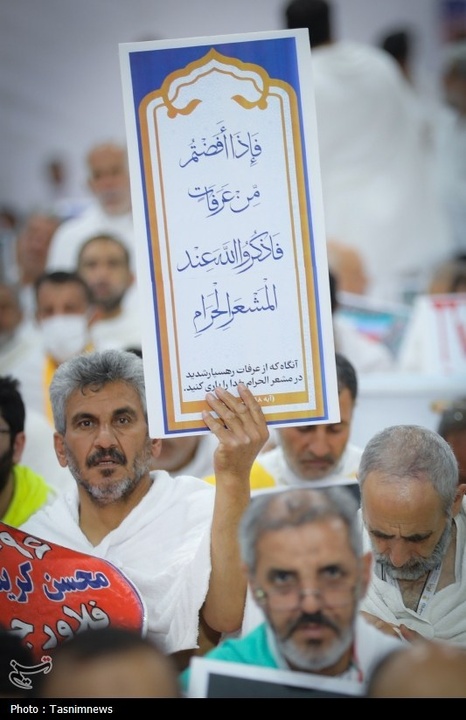 فَإِذَا أَفَضْتُم
مِّنْ عَرَفَاتٍ
فَاذْكُرُوا اللَّهَ عِندَ
الْمَشْعَرِ الْحَرَامِ
آنگاه که از عرفات رهسپار شدید
در مشعر الحرام خدا را یاری کنید.
محسن
تسنیم
Photo : Tasnimnews